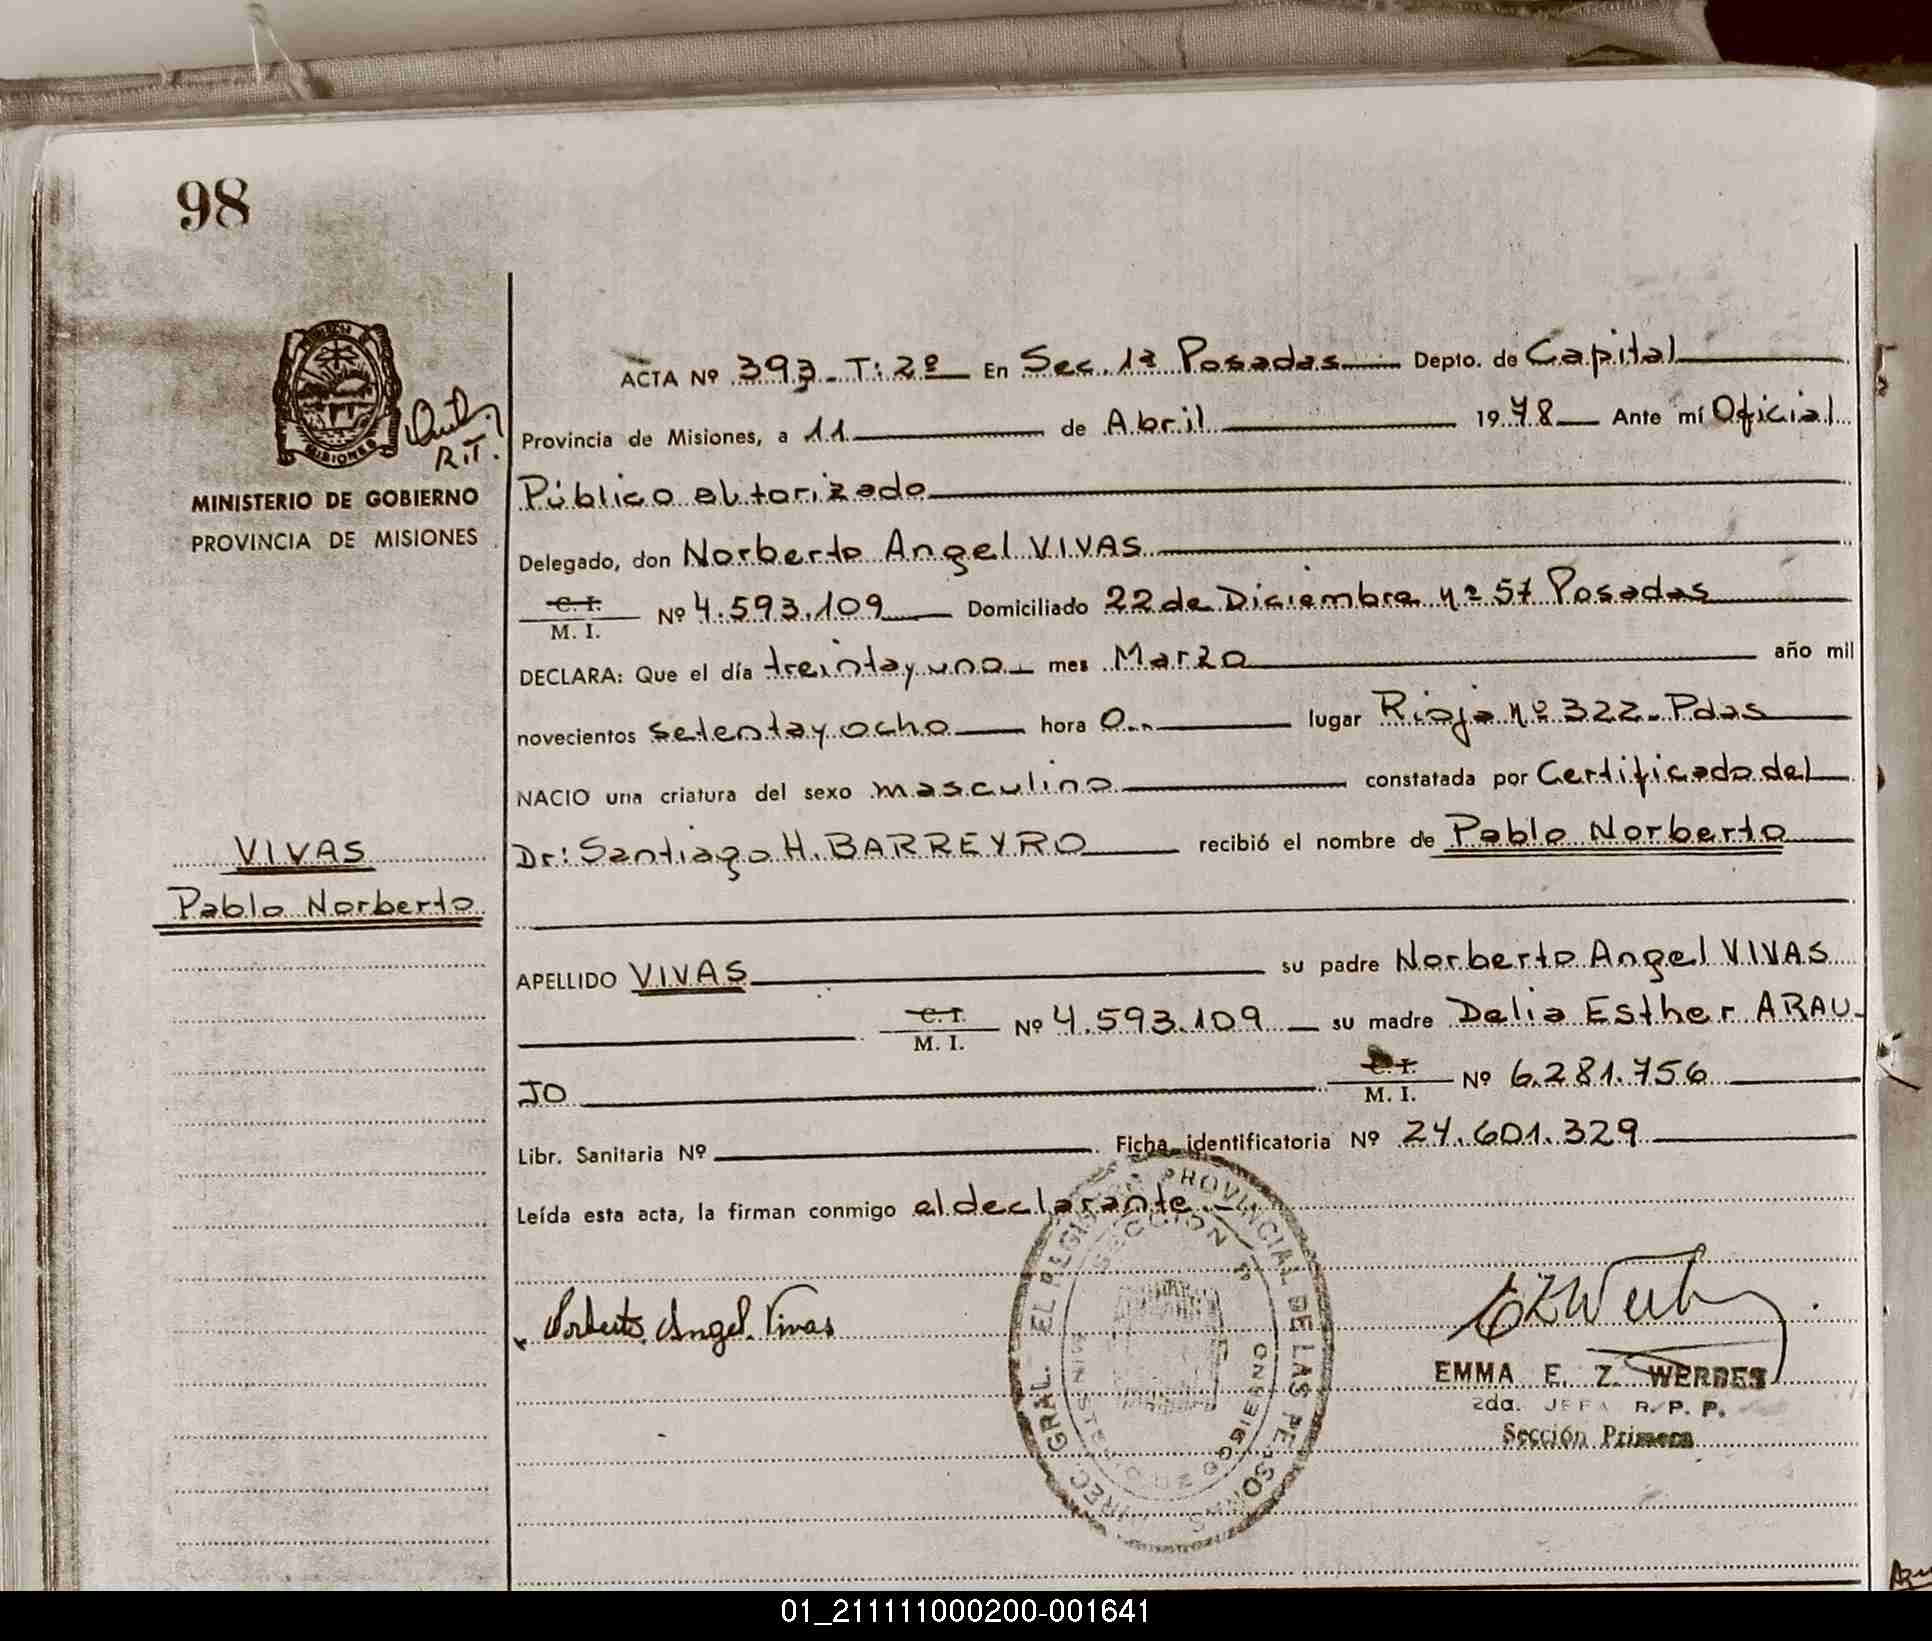 98
MISIONES
R.T.
MINISTERIO DE GOBIERNO
PROVINCIA DE MISIONES
VIVAS
Pablo Norberto
ACTA Nº 393 - T: 2º En Sec. 1ª Posadas Depto. de Capital
Provincia de Misiones, a 11 de Abril 1978 Ante mí Oficial
Público autorizado
Delegado, don Norberto Angel VIVAS
C. I. M. I. Nº 4.593.109 Domiciliado 22 de Diciembre nº 57 Posadas
DECLARA: Que el día treinta y uno mes Marzo año mil
novecientos setenta y ocho hora 0.. lugar Rioja nº 322 - Pdas
NACIO una criatura del sexo masculino constatada por Certificado del
Dr: Santiago H. BARREYRO recibió el nombre de Pablo Norberto
APELLIDO VIVAS su padre Norberto Angel VIVAS
C. I. M. I. Nº 4.593.109 su madre Delia Esther ARAU-
JO C. I. M. I. Nº 6.281.756
Libr. Sanitaria Nº Ficha identificatoria Nº 24.601.329
Leída esta acta, la firman conmigo el declarante.
Norberto Angel Vivas
GRAL. EL REGISTRO PROVINCIAL DE LAS PERSONAS
SECCION 1ª
MINISTERIO DE GOBIERNO
EMMA E. Z. WERBES
2da. JEFA R. P. P.
Sección Primera
01_211111000200-001641